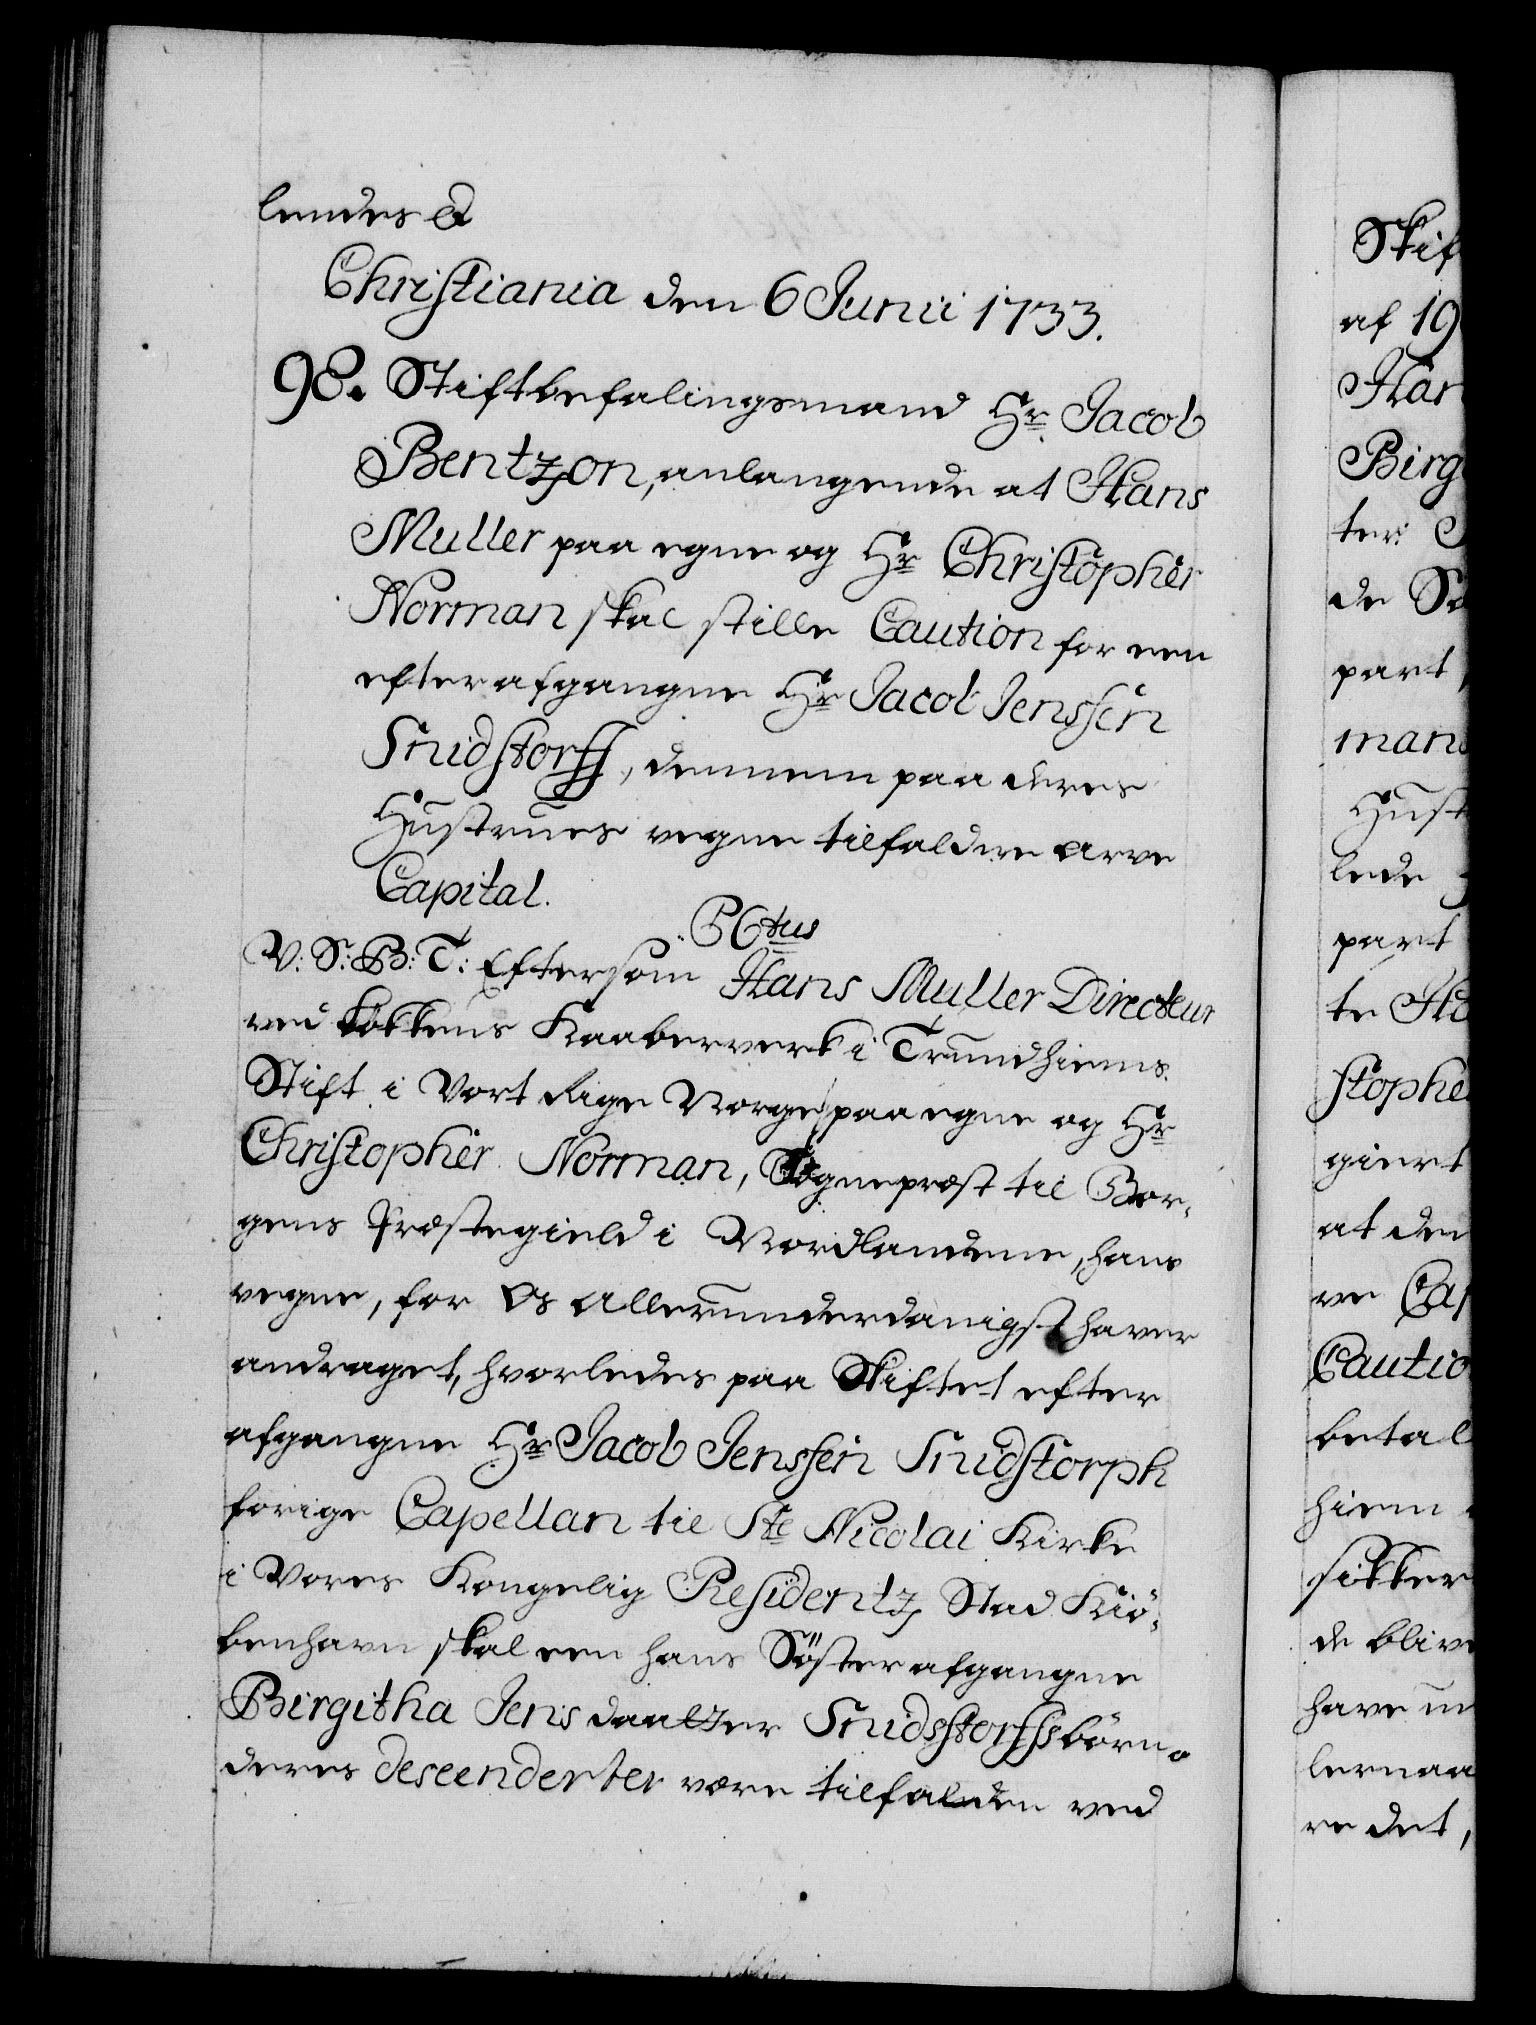 lendes etc
Christiania den 6 Junii 1733.
98. Stiftbefalingsmand Hr. Jacob
Bentzon, anlangende at Hans
Muller paa egne og Hr Christopher
Norman skal stille Caution for een
efter afgangne Hr Jacob Jenssen
Snidstorff, dennem paa deres
Hustrues vegne tilfaldne Arve
Capital.
PCtus
V: S: B: T: Eftersom Hans Muller Directeur
ved Røkkens Kaaberverk i Trundhiems
Stift i Vort Rige Norge paa egne og Hr
Christopher Norman, Sognepræst til Bor-
gens Præstegield i Nordlandene, hans
vegne, for Os Allerunderdanigst haver
andraget, hvorledes paa Skiftet efter
afgangne Hr Jacob Jenssen Snidstorph
forige Capellan til Ste Nicolai Kirke
i Vores Kongelig Residentz Stad Kiö-
benhavn skal een hans Söster afgangne
Birgitha Jens daatter Snidsstorffs börn o
deres descenderter være tilfalden ved
Skif
af 19
Han
Birg
ter
de Sø
part
mand
Hust
lede
part
te Ha
stophe
giert
at den
ve Cap
Cautio
betal
hiem
sikker
de blive
have un
lernaa
re det,